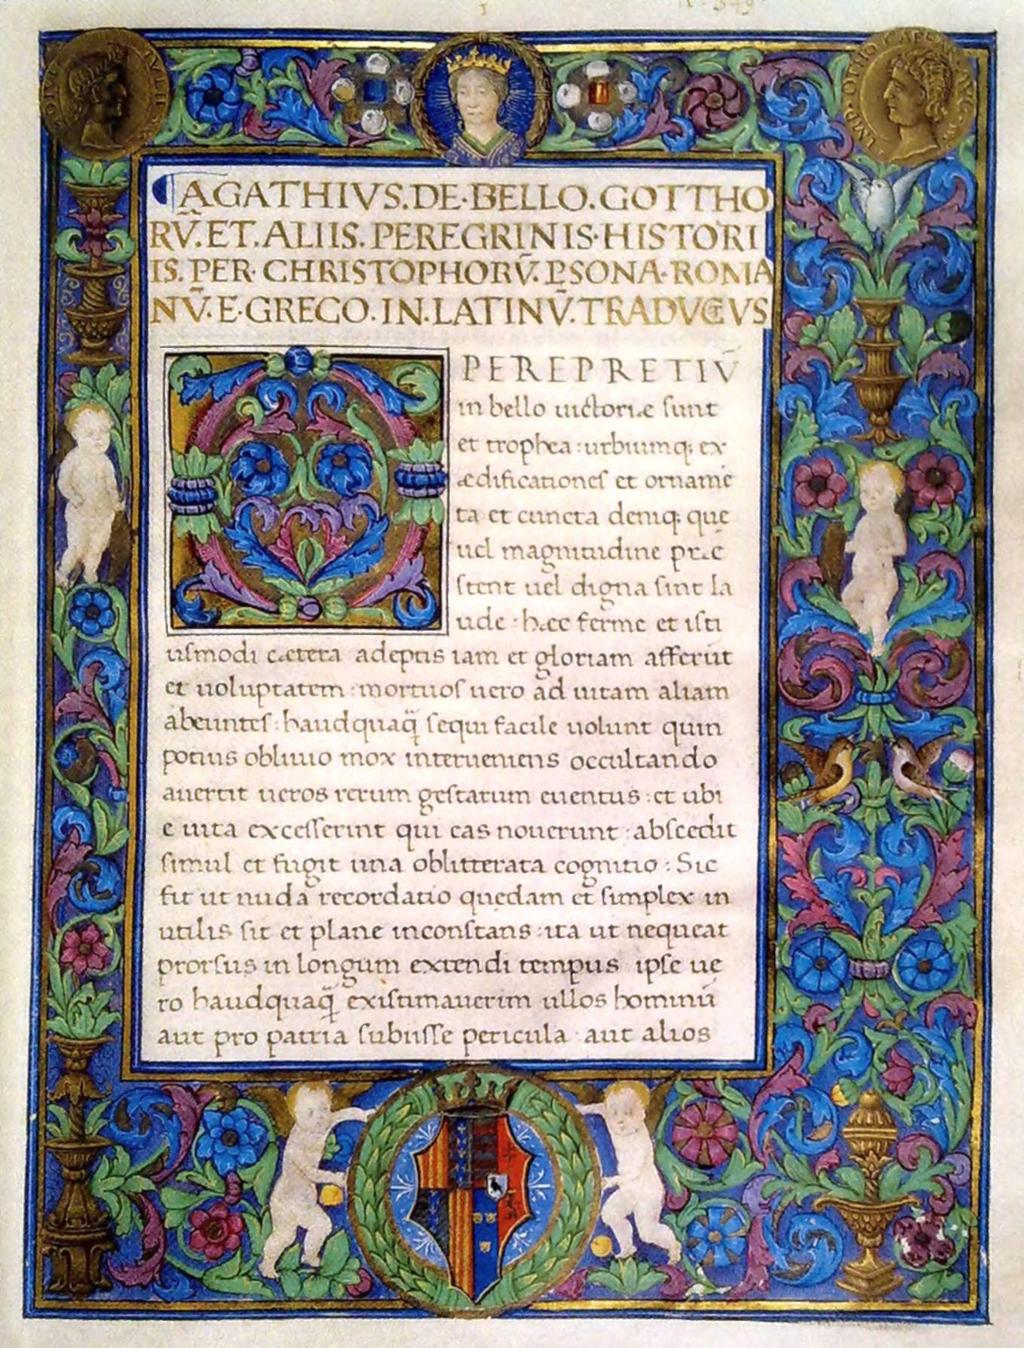 AGATHIVS.DE·BELLO.GOTTHO
RV̄.ET.ALIIS.PEREGRINIS·HISTORI
IS.PER·CHRISTOPHORV̄.ꝐSONA·ROMA
NV̄·E·GRECO.IN·LATINV̄.TRADVCTVS
OPEREPRETIV̄
in bello uictoriae sunt
et trophea : urbiumq; ex
ædificationes et orname
ta et cuncta deniq; que
uel magnitudine prae
stent uel digna sint la
ude : hæc ferme et isti
usmodi cætera adeptis iam et gloriam afferūt
et uoluptatem : mortuos uero ad uitam aliam
abeuntes : haudquaq̄ sequi facile uolunt quin
potius obliuio mox interueniens occultando
auertit ueros rerum gestarum euentus : et ubi
e uita excesserint qui eas nouerunt : abscedit
simul et fugit una oblitterata cognitio : Sic
fit ut nuda recordatio quędam et simplex in
utilis sit et plane inconstans : ita ut nequeat
prorsus in longum extendi tempus ipse ue
ro haudquaq̄ existimauerim ullos hominū
aut pro patria subiisse pericula · aut alios